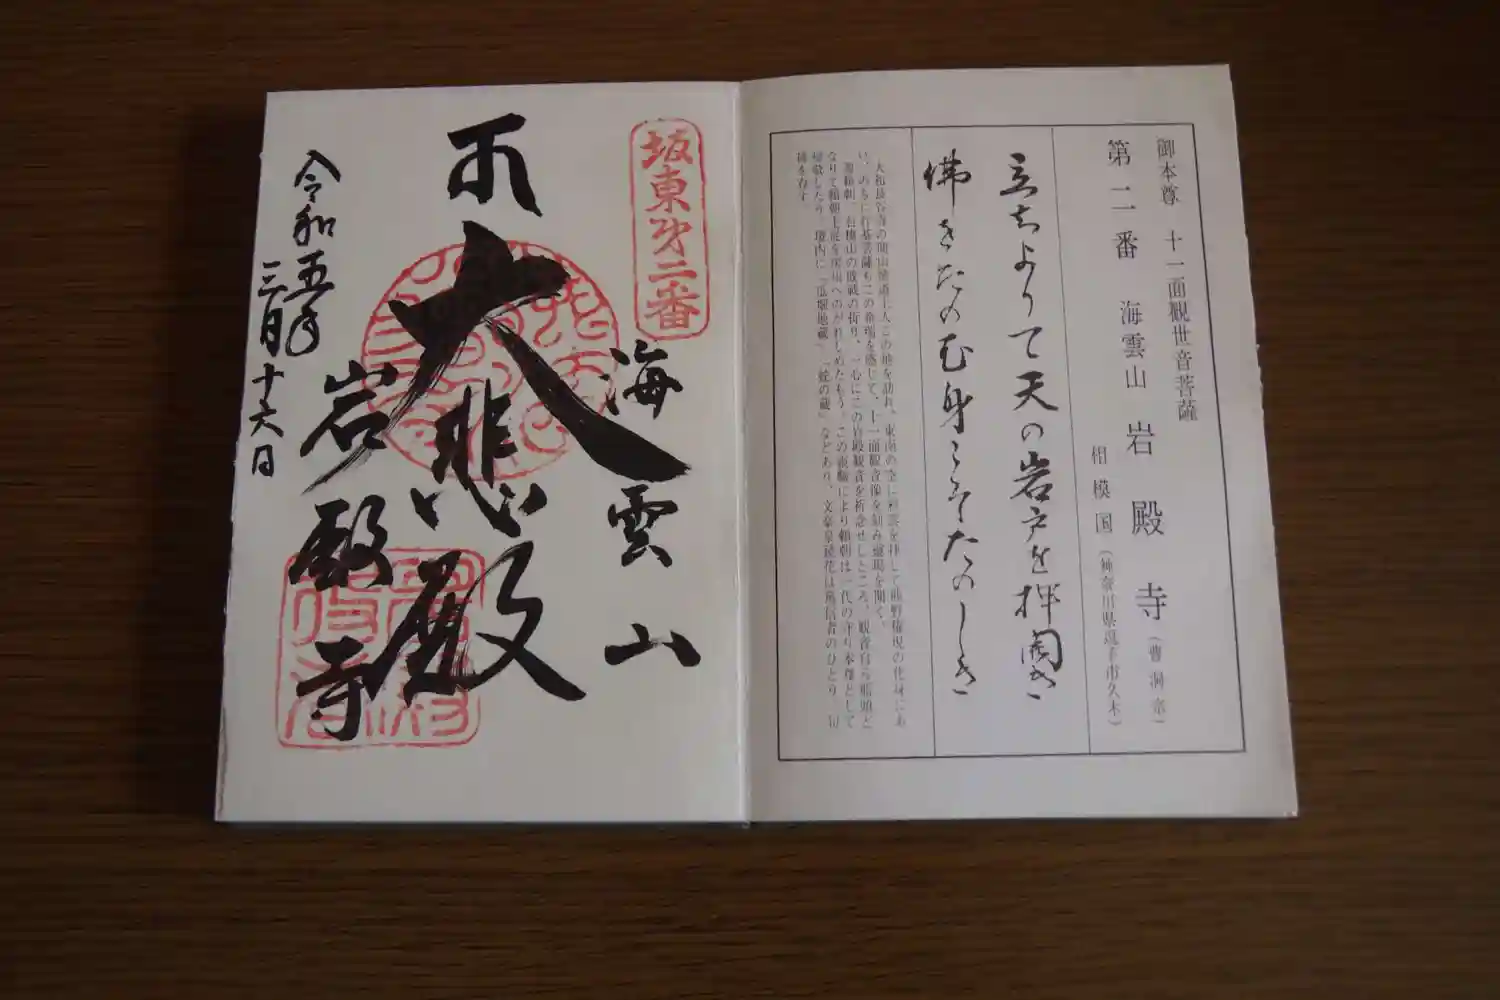 御本尊 十一面観世音菩薩
第二番 海雲山 岩殿寺(曹洞宗)
相模国(神奈川県逗子市久木)
立ちよりて天の岩戸を押開き
佛をたのむ身こそたのしき
大和長谷寺の開山徳道上人この地を訪れ、東南の空に彩雲を拝して熊野権現の化身にあ
い、のちに行基菩薩もこの奇瑞を感じて、十一面観音像を刻み霊場を開く。
源頼朝、石橋山の敗戦の折り、一心にこの岩殿観音を祈念せしところ、観音自ら船頭と
なりて頼朝主従を房州へのがれしめたもう。この霊験により頼朝は一代の守り本尊として
帰敬したり。境内に「瓜堀地蔵」「蛇の蔵」などあり、文豪泉鏡花は篤信者のひとり、句
碑を存す。
坂東第二番
海雲山
大悲殿
岩殿寺
令和五年
三月十六日